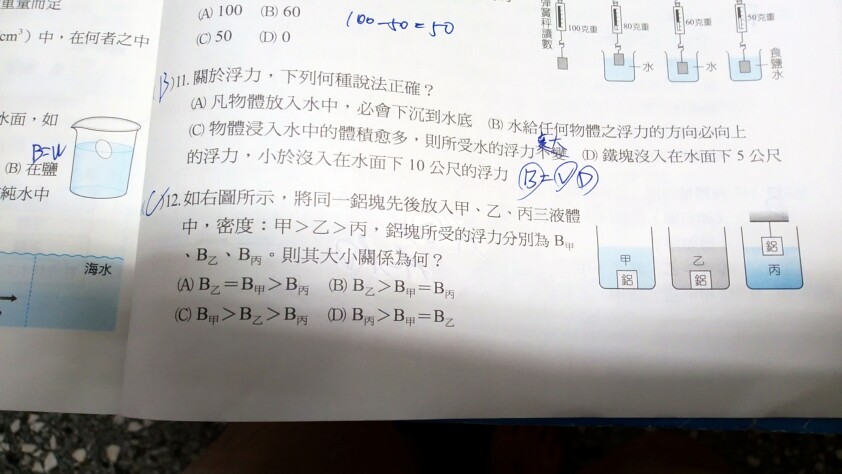 重量而定
cm³）中，在何者之中
水面，如
B=W
(B) 在鹽
純水中
海水
(A) 100 (B) 60
(C) 50 (D) 0
100-50=50
彈簧秤讀數
100克重
80克重
60克重
50克重
水
水
食鹽水
(B)11. 關於浮力，下列何種說法正確？
(A) 凡物體放入水中，必會下沉到水底 (B) 水給任何物體之浮力的方向必向上
(C) 物體浸入水中的體積愈多，則所受水的浮力不變 (D) 鐵塊沒入在水面下 5 公尺
的浮力，小於沒入在水面下 10 公尺的浮力
B=VD
(C)12. 如右圖所示，將同一鋁塊先後放入甲、乙、丙三液體
中，密度：甲＞乙＞丙，鋁塊所受的浮力分別為 B甲
、B乙、B丙。則其大小關係為何？
(A) B乙＝B甲＞B丙 (B) B乙＞B甲＝B丙
(C) B甲＞B乙＞B丙 (D) B丙＞B甲＝B乙
甲
鋁
乙
鋁
鋁
丙